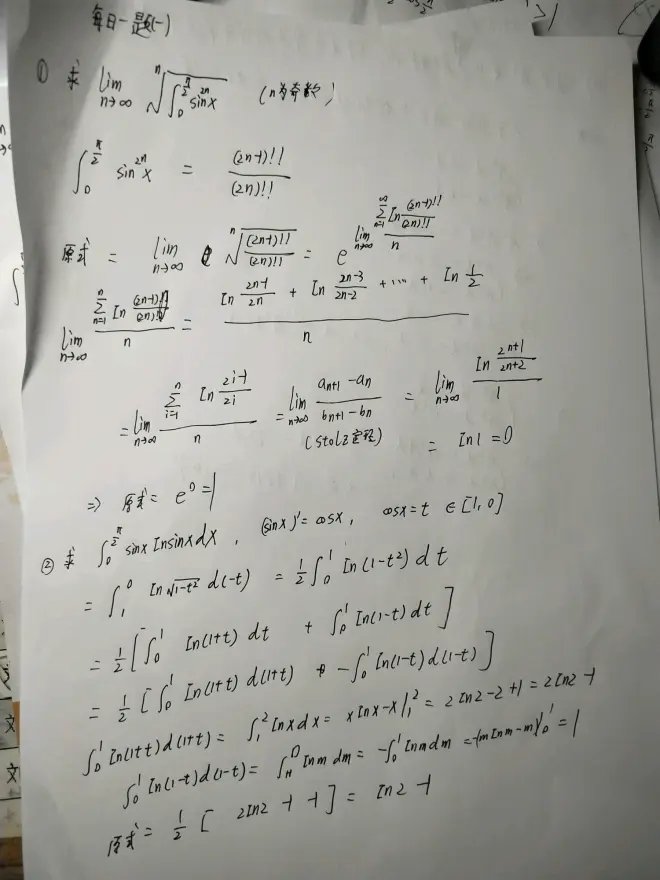 每日一题(一)
① 求 lim n→∞ ⁿ√(∫₀^(π/2) sin^(2n) x) (n为奇数)
∫₀^(π/2) sin^(2n) x = (2n-1)!!/(2n)!!
原式 = lim n→∞ ⁿ√((2n-1)!!/(2n)!!) = e^(lim n→∞ (∑ n=1 ∞ ln (2n-1)!!/(2n)!!)/n)
lim n→∞ (∑ n=1 ln (2n-1)!!/(2n)!!)/n = (ln (2n-1)/2n + ln (2n-3)/(2n-2) + ⋯ + ln 1/2)/n
= lim n→∞ (∑ i=1 n ln (2i-1)/2i)/n = lim n→∞ (a_(n+1) - a_n)/(b_(n+1) - b_n) = lim n→∞ (ln (2n+1)/(2n+2))/1
(Stolz定理) = ln1 = 0
⇒ 原式 = e⁰ = 1
② 求 ∫₀^(π/2) sinx lnsinx dx, (sinx)' = cosx, cosx = t ∈ [1, 0]
= ∫₁⁰ ln√(1-t²) d(-t) = 1/2 ∫₀¹ ln(1-t²) dt
= 1/2 [∫₀¹ ln(1+t) dt + ∫₀¹ ln(1-t) dt]
= 1/2 [∫₀¹ ln(1+t) d(1+t) + -∫₀¹ ln(1-t) d(1-t)]
∫₀¹ ln(1+t) d(1+t) = ∫₁² lnx dx = xlnx-x|₁² = 2ln2-2+1 = 2ln2-1
∫₀¹ ln(1-t) d(1-t) = ∫₁⁰ lnm dm = -∫₀¹ lnm dm = -(mlnm-m)|₀¹ = 1
原式 = 1/2 [2ln2 -1 -1] = ln2 -1
文
文